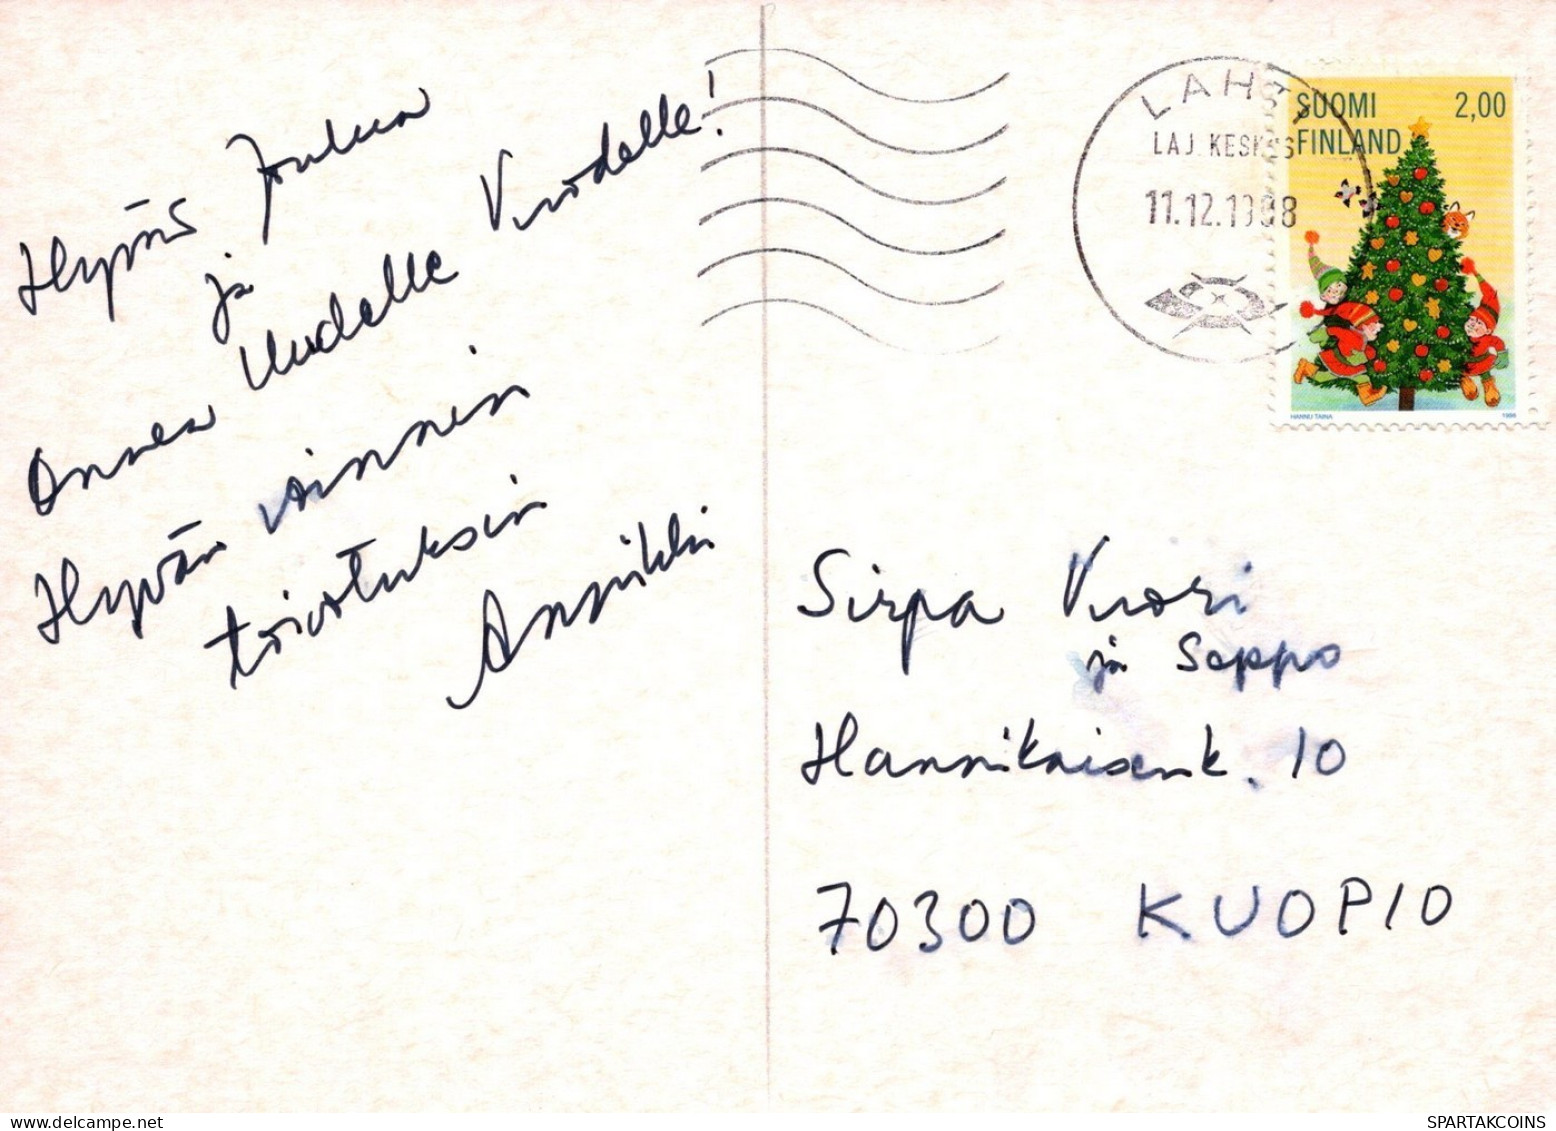 Hyvää Joulua
ja
Onnea Uudelle Vuodelle!
Hyvän vinnein
toivotuksin
Annikki
LAHTI
LAJ. KESKUS
11.12.1998
SUOMI 2,00
FINLAND
HANNU TAINA 1998
Sirpa Vuori
ja Seppo
Hannikaisenk. 10
70300 KUOPIO
SPARTAKCOINS